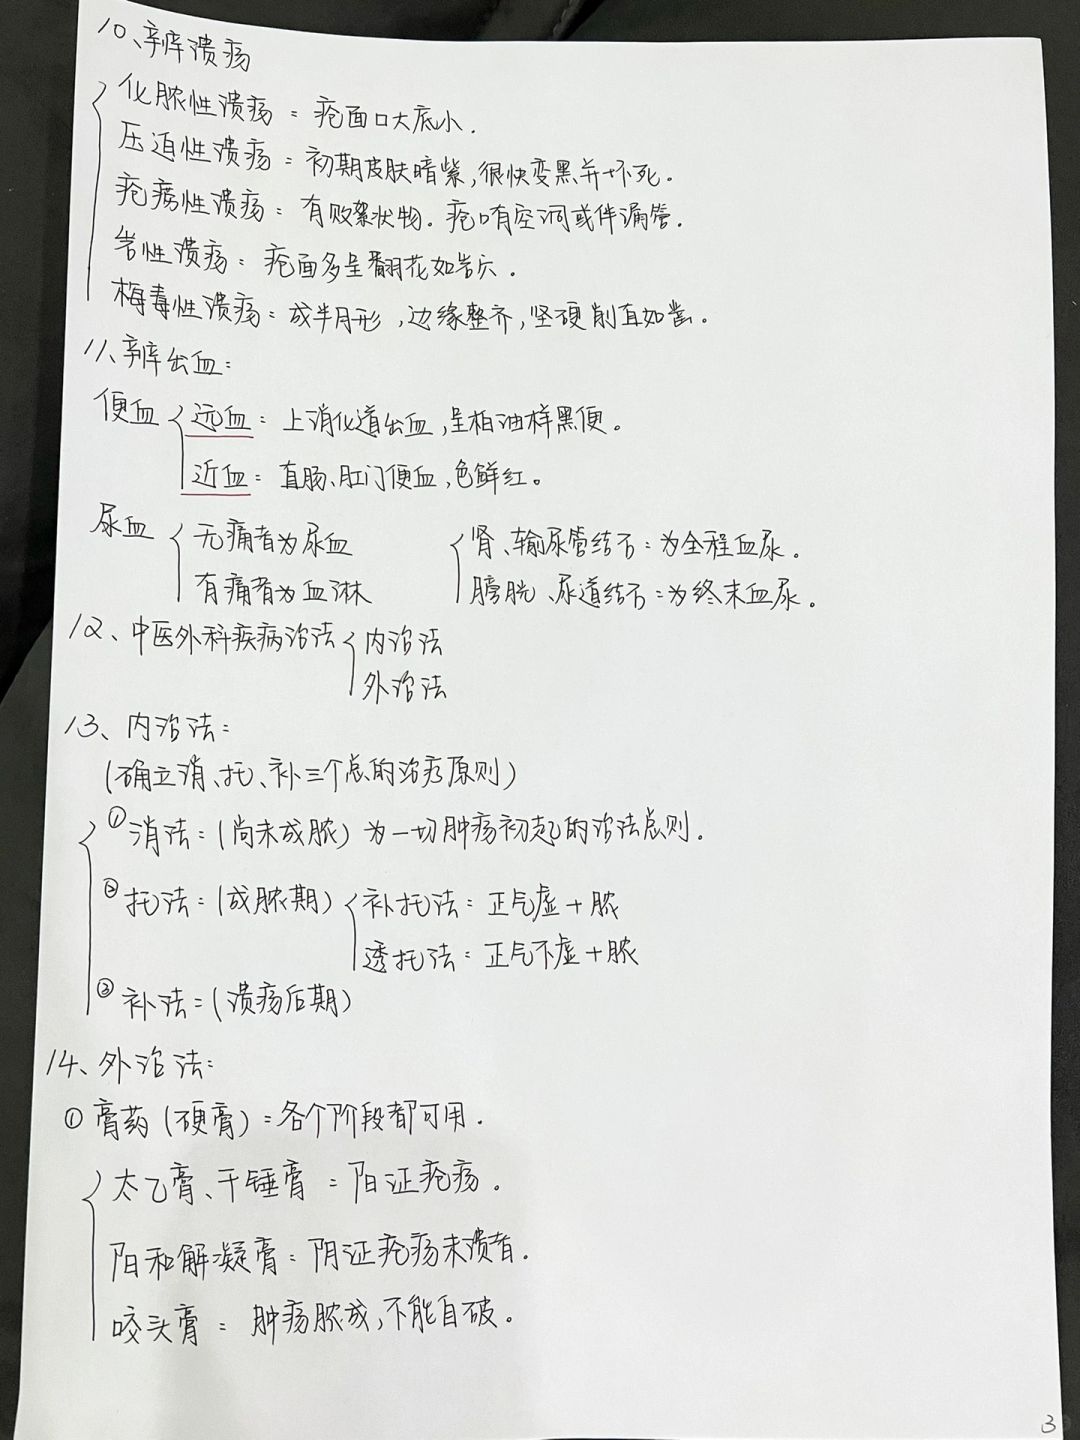 10、辨溃疡
化脓性溃疡：疮面口大底小.
压迫性溃疡：初期皮肤暗紫,很快变黑并坏死.
疮痨性溃疡：有败絮状物.疮口有空洞或伴漏管.
岩性溃疡：疮面多呈翻花如岩穴.
梅毒性溃疡：成半月形,边缘整齐,坚硬削直如凿。
11、辨出血：
便血 远血：上消化道出血,呈柏油样黑便。
近血：直肠、肛门便血,色鲜红。
尿血 无痛者为尿血 肾、输尿管结石：为全程血尿.
有痛者为血淋 膀胱、尿道结石：为终末血尿。
12、中医外科疾病治法 内治法
外治法
13、内治法：
(确立消、托、补三个总的治疗原则)
①消法：(尚未成脓)为一切肿疡初起的治法总则.
②托法：(成脓期) 补托法：正气虚+脓
透托法：正气不虚+脓
③补法：(溃疡后期)
14、外治法：
①膏药(硬膏)：各个阶段都可用.
太乙膏、千锤膏：阳证疮疡.
阳和解凝膏：阴证疮疡未溃者.
咬头膏：肿疡脓成,不能自破。
3